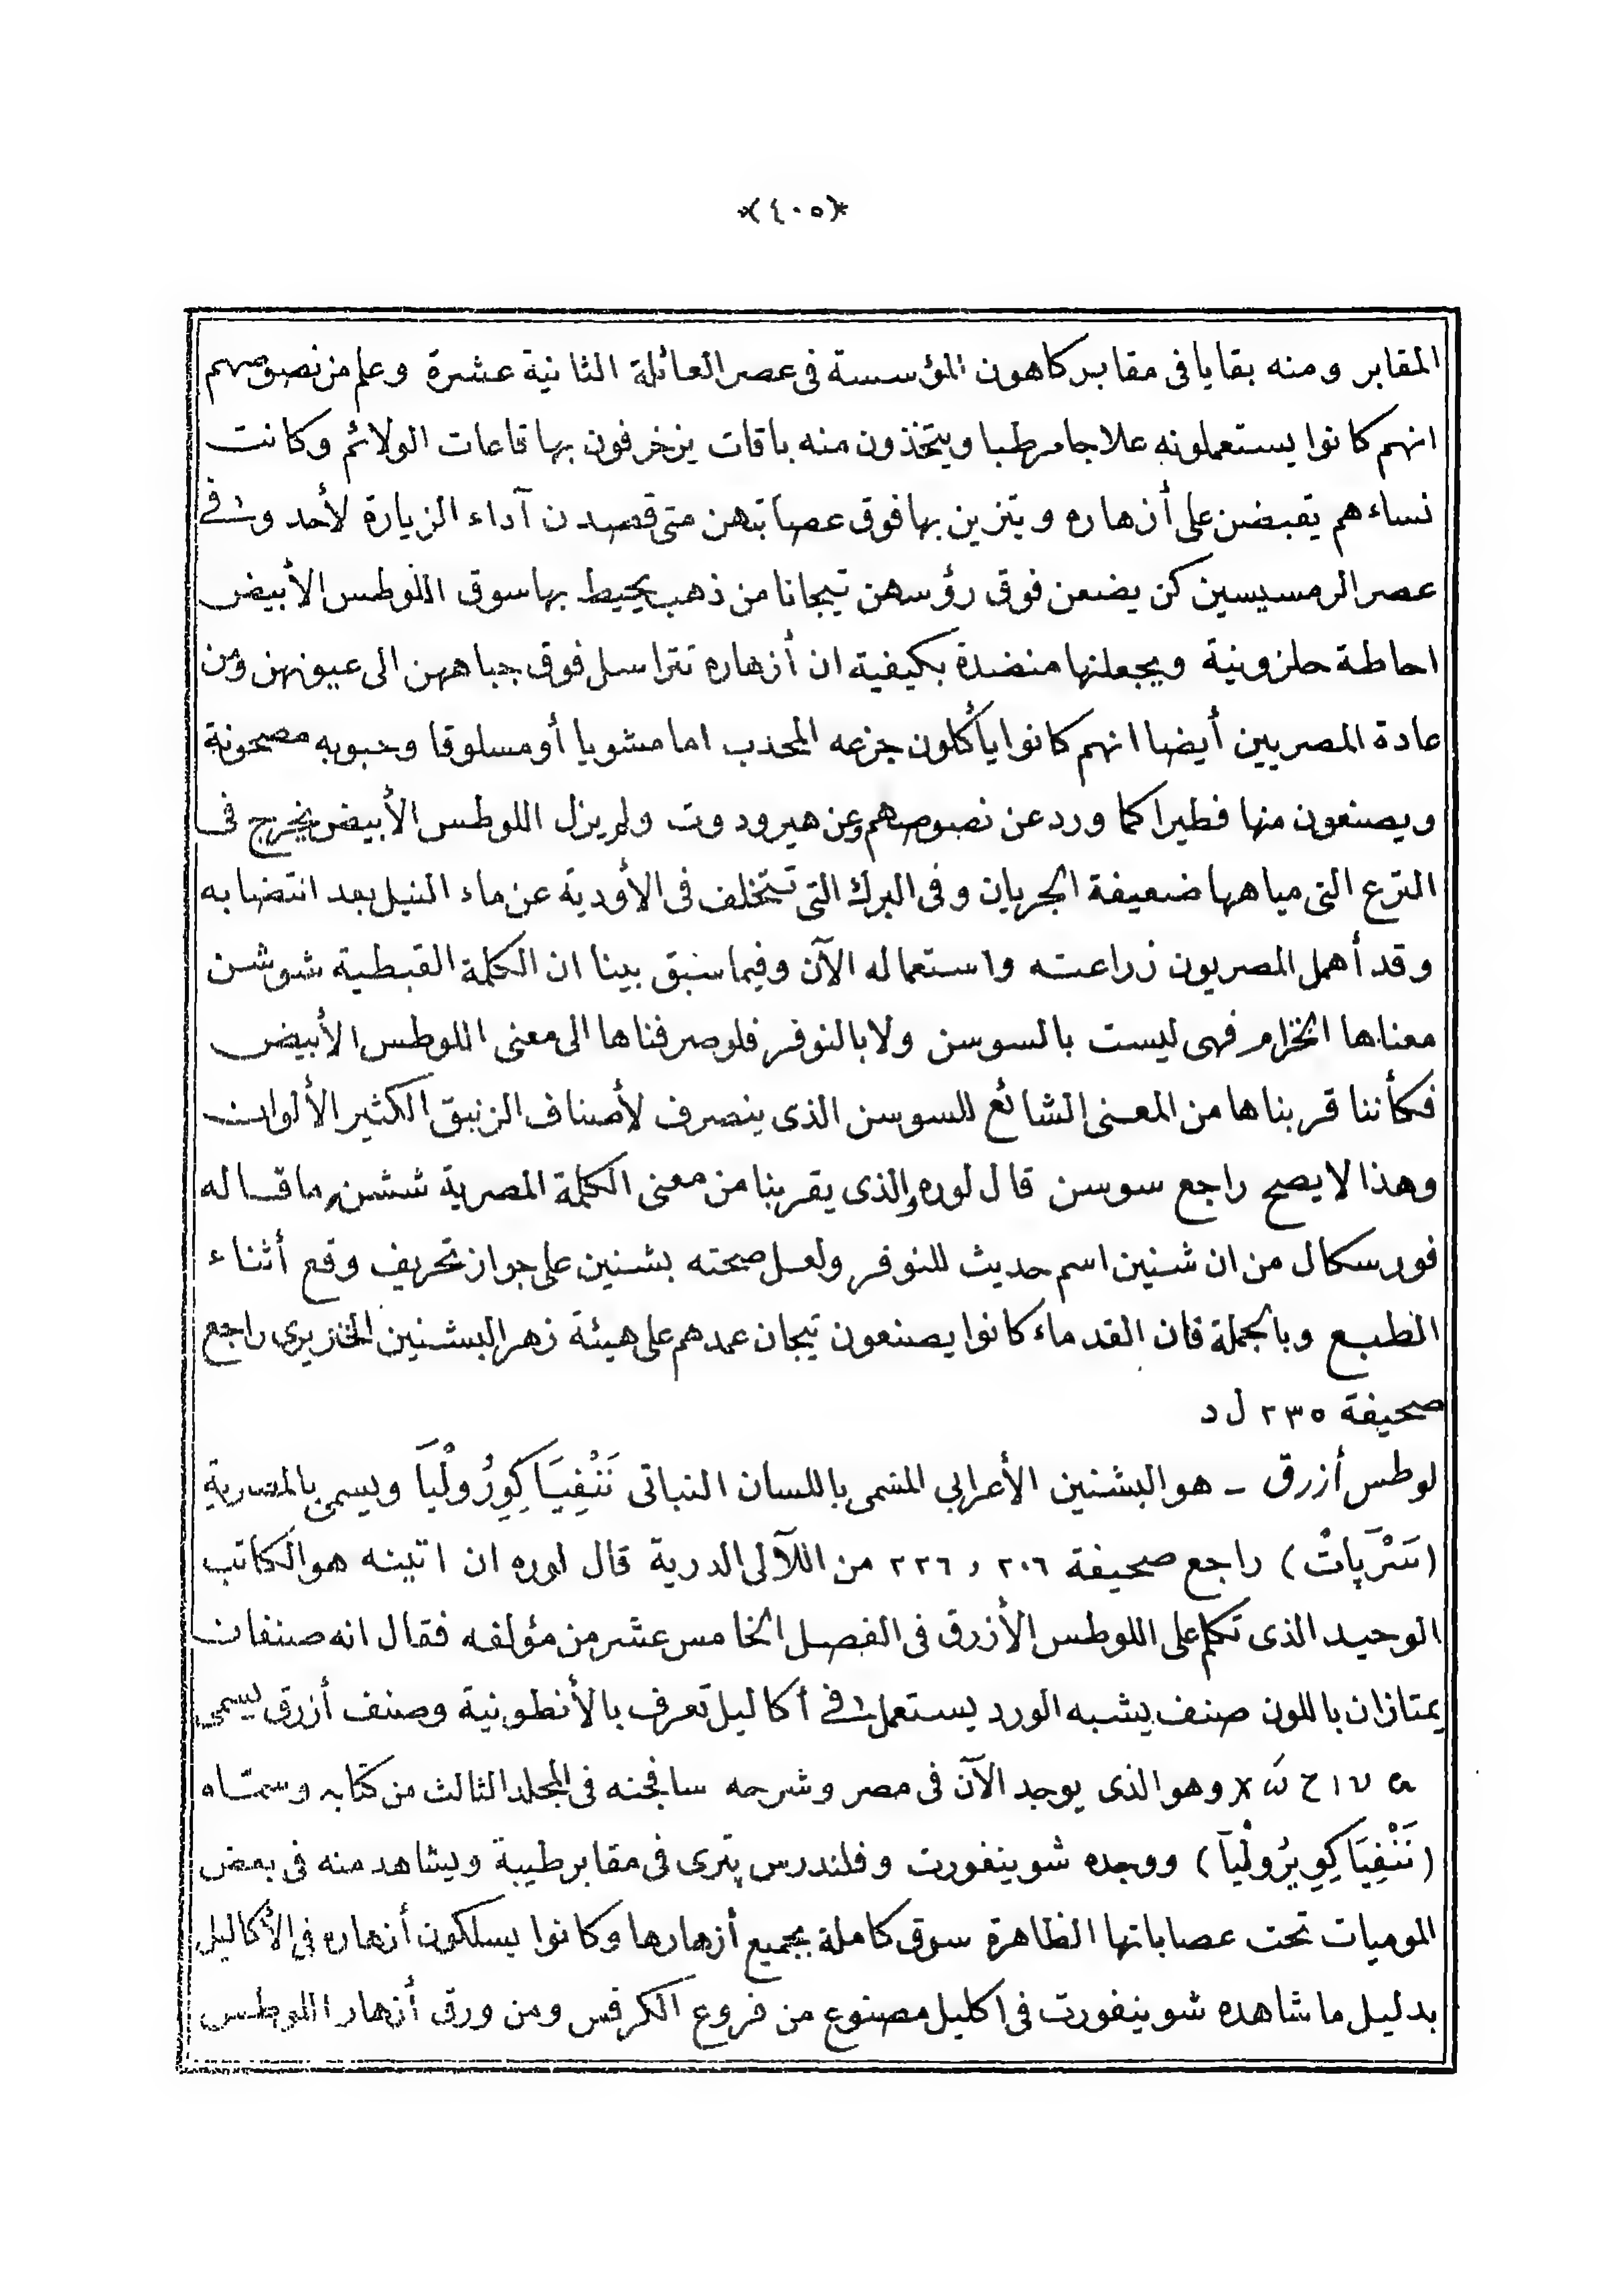 *(٤٠٥)*
المقابر ومنه بقايا فى مقابر كاهون المؤسسة فى عصر العائلة الثانية عشرة وعلم من نصوصهم
انهم كانوا يستعملونه علاجا مرطبا ويتخذون منه باقات يزخرفون بها قاعات الولائم وكانت
نساءهم يقبضن على أزهاره ويتزين بها فوق عصابتهن متى قصدن آداء الزيارة لأحد وفى
عصر الرمسيسين كن يضعن فوق رؤسهن تيجانا من ذهب يحيط بها سوق اللوطس الأبيض
احاطة حلزونية ويجعلنها منضدة بكيفية ان أزهاره تتراسل فوق جباههن الى عيونهن ومن
عادة المصريين أيضا انهم كانوا يأكلون جزعه المحدب اما مشويا أو مسلوقا وحبوبه مصحونة
ويصنعون منها فطيرا كما ورد عن نصوصهم وعن هيرودوت ولم يزل اللوطس الأبيض يخرج فى
الترع التى مياهها ضعيفة الجريان وفى البرك التى تتخلف فى الأودية عن ماء النيل بعد انتضابه
وقد أهمل المصريون زراعته واستعماله الآن وفيما سبق بينا ان الكلمة القبطية شوشن
معناها الخزام فهى ليست بالسوسن ولا بالنوفر فلو صرفناها الى معنى اللوطس الأبيض
فكأننا قربناها من المعنى الشائع للسوسن الذى ينصرف لأصناف الزنبق الكثير الألوان
وهذا لا يصح راجع سوسن قال لوره والذى يقربنا من معنى الكلمة المصرية ششن ما قاله
فورسكال من ان شنين اسم حديث للنوفر ولعل صحته بشنين على جواز تحريف وقع أثناء
الطبع وبالجملة فان القدماء كانوا يصنعون تيجان عمدهم على هيئة زهر البشنين الخنزيرى راجع
صحيفة ٢٣٥ ل د
لوطس أزرق - هو البشنين الأعرابى المسمى باللسان النباتى نَنْفِيَا كِوِرُولْيَا ويسمى بالمصرية
(سَرْپَاتْ) راجع صحيفة ٢٠٦ و ٢٢٦ من اللآلى الدرية قال لوره ان اتينه هو الكاتب
الوحيد الذى تكلم على اللوطس الأزرق فى الفصل الخامس عشر من مؤلفه فقال انه صنفان
يمتازان باللون صنف يشبه الورد يستعمل فى أكاليل تعرف بالأنطونية وصنف أزرق يسمى
وهو الذى يوجد الآن فى مصر وشرحه سافجنه فى المجلد الثالث من كتابه وسمتاه
(نَنْفِيَا كِوِيرُولْيَا) ووجده شوينفورت وفلندرس پترى فى مقابر طيبة ويشاهد منه فى بعض
الموميات تحت عصاباتها الظاهرة سوق كاملة بجميع أزهارها وكانوا يسلكون أزهاره فى الأكاليل
بدليل ما شاهده شوينفورت فى اكليل مصنوع من فروع الكرفس ومن ورق أزهار اللوطس